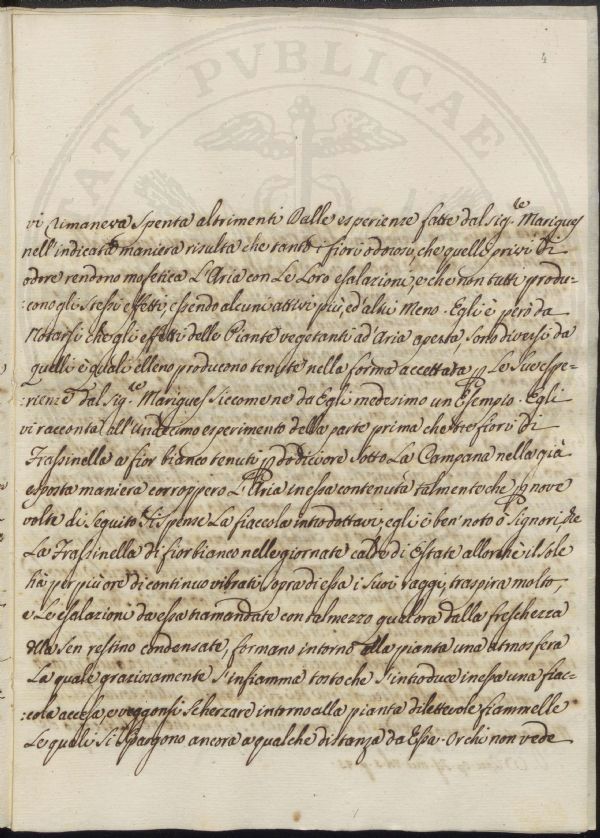 4
vi rimaneva spenta altrimenti Dalle esperienze fatte dal Sig.le Marigues
nell'indicata maniera risulta che tanto i fiori odorosi, che quelli privi di
odore rendono mofetica L'Aria con Le Loro esalazioni, e che non tutti produ-
cono gli stessi effetti, essendo alcuni attivi più, ed altri Meno. Egli è però da
Notarsi che gli effetti delle Piante vegetanti ad Aria aperta, sono diversi da
quelli i quali elleno producono tenute nella forma accettada Le Suespe-
:rienze dal Sig.le Marigues siccome ne da Egli medesimo un Esempio. Egli
vi racconta all'undecimo esperimento della parte prima che tre fiori di
Frassinella a fior bianco tenuti p dodici ore sotto La Campana nella già
esposta maniera corroppero L'Aria in essa contenuta talmente che p nove
volte di seguito si spense La fiaccola introdottavi, egli è ben noto o Signori, che
La Frassinella di fior bianco nelle giornate calde di Estate allorchè il sole
hà per più ore di continuo vibrati sopra di essa i suoi raggi, traspira molto,
e Le esalazioni da essa tramandate con tal mezzo qualora dalla freschezza
della sen restino condensate, formano intorno alla pianta una atmosfera
La quale graziosamente s'infiamma tosto che s'introduce in essa una fiac-
:cola accesa, e veggonsi scherzare intorno alla pianta dilettevole fiammelle
Le quali si spargono ancora a qualche distanza da Essa. Or chi non vede
PVBLICAE